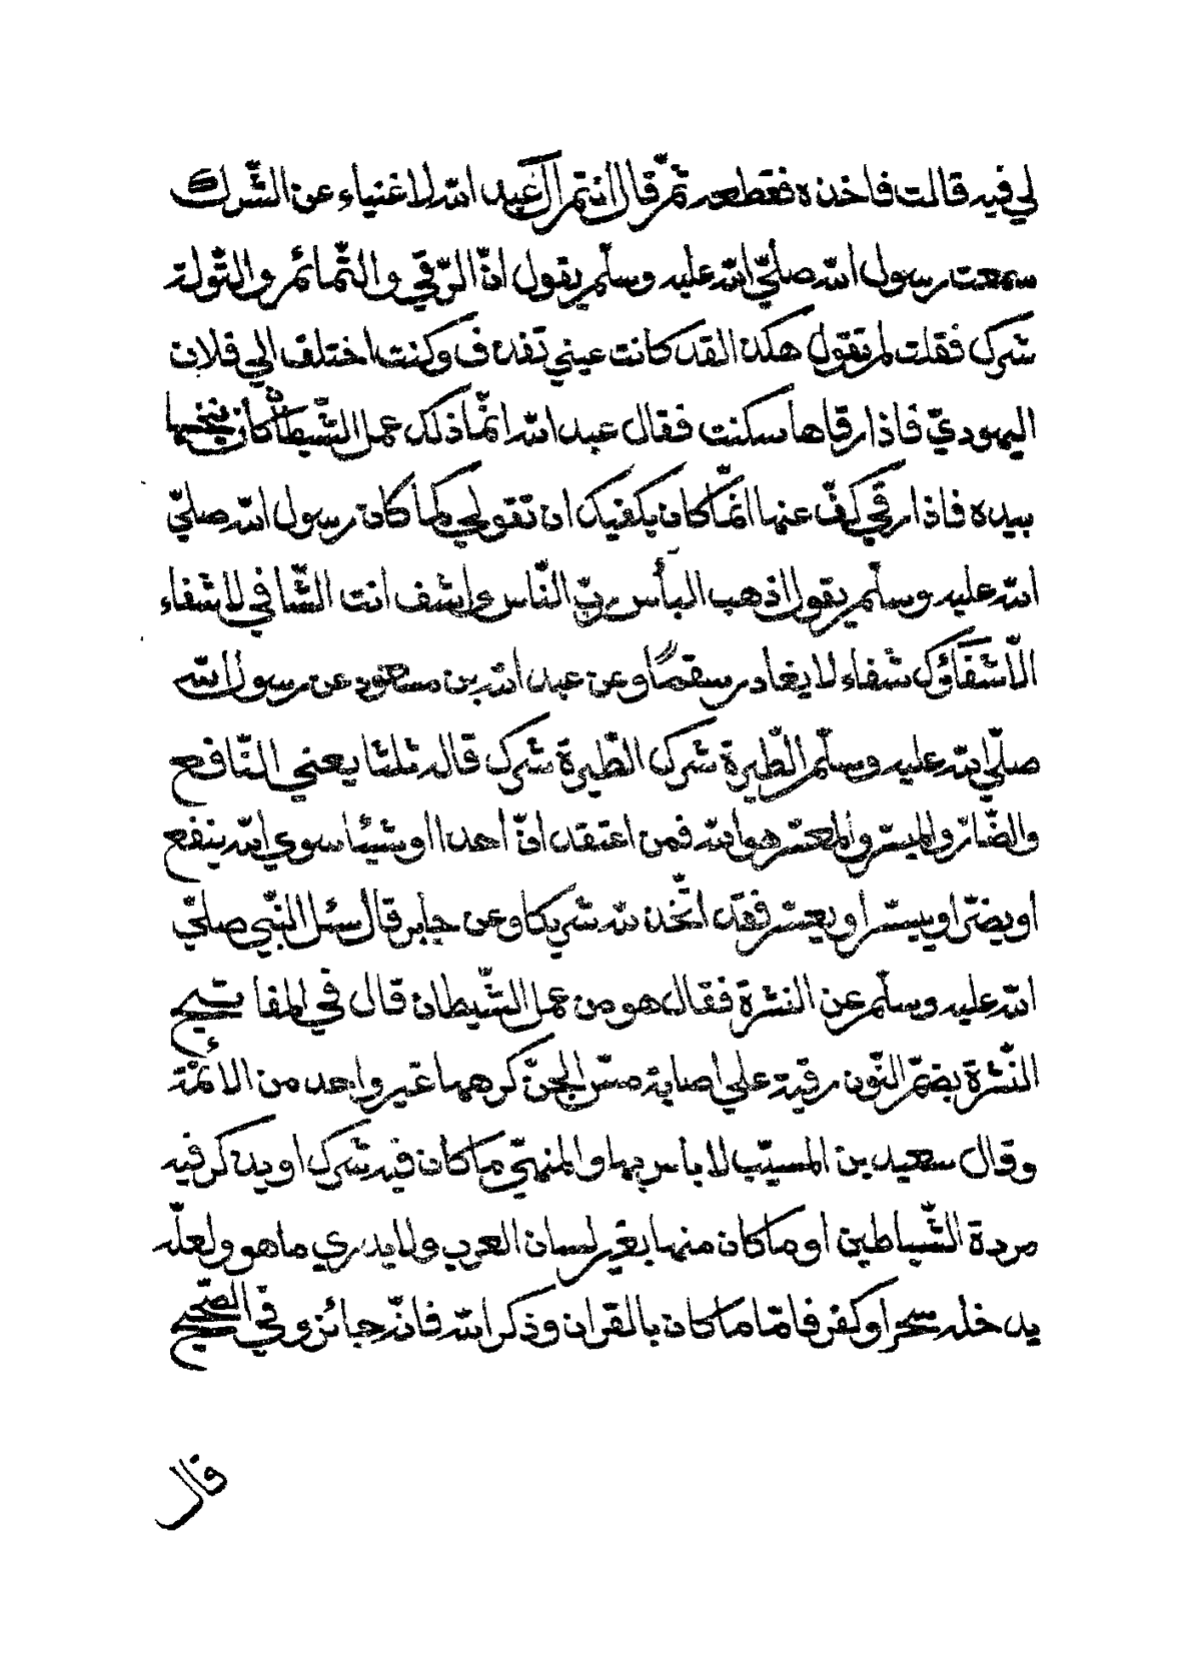 لي فيه قالت فاخذه فقطعه ثمّ قال انتم آل عبد الله لاغنياء عن الشّرك
سمعت رسول الله صلّي الله عليه وسلّم يقول انّ الرّقي والتّمائم والتّولة
شرك فقلت لم تقول هكذا لقد كانت عيني تقذف وكنت اختلف الي فلان
اليهوديّ فاذا رقاها سكنت فقال عبد الله انّما ذلك عمل الشّيطان كان ينخسها
بيده فاذا رقي كفّ عنها انّما كان يكفيك ان تقولي كما كان رسول الله صلّي
الله عليه وسلّم يقول اذهب البأس ربّ النّاس واشف انت الشّافي لا شفاء
الّا شفاؤك شفاء لا يغادر سقمًا وعن عبد الله بن مسعود عن رسول الله
صلّي الله عليه وسلّم الطّيرة شرك الطّيرة شرك قاله ثلثا يعني النّافع
والضّارّ والميسّر والمعسّر هو الله فمن اعتقد انّ احدا او شيئا سوي الله ينفع
او يضرّ او ييسّر او يعسّر فقد اتّخذ لله شريكا وعن جابر قال سئل النّبي صلّي
الله عليه وسلّم عن النشرة فقال هو من عمل الشّيطان قال في المفاتيح
النّشرة بضمّ النّون رقية علي اصابة مسّ الجنّ كرهها غير واحد من الائمّة
وقال سعيد بن المسيّب لا بأس بها والمنهيّ ما كان فيه شرك او يذكر فيه
مردة الشّياطين او ما كان منها بغير لسان العرب ولا يدري ما هو ولعلّه
يدخله سحر او كفر فامّا ما كان بالقران وذكر الله فانّه جائز وفي الصّحيح
قال